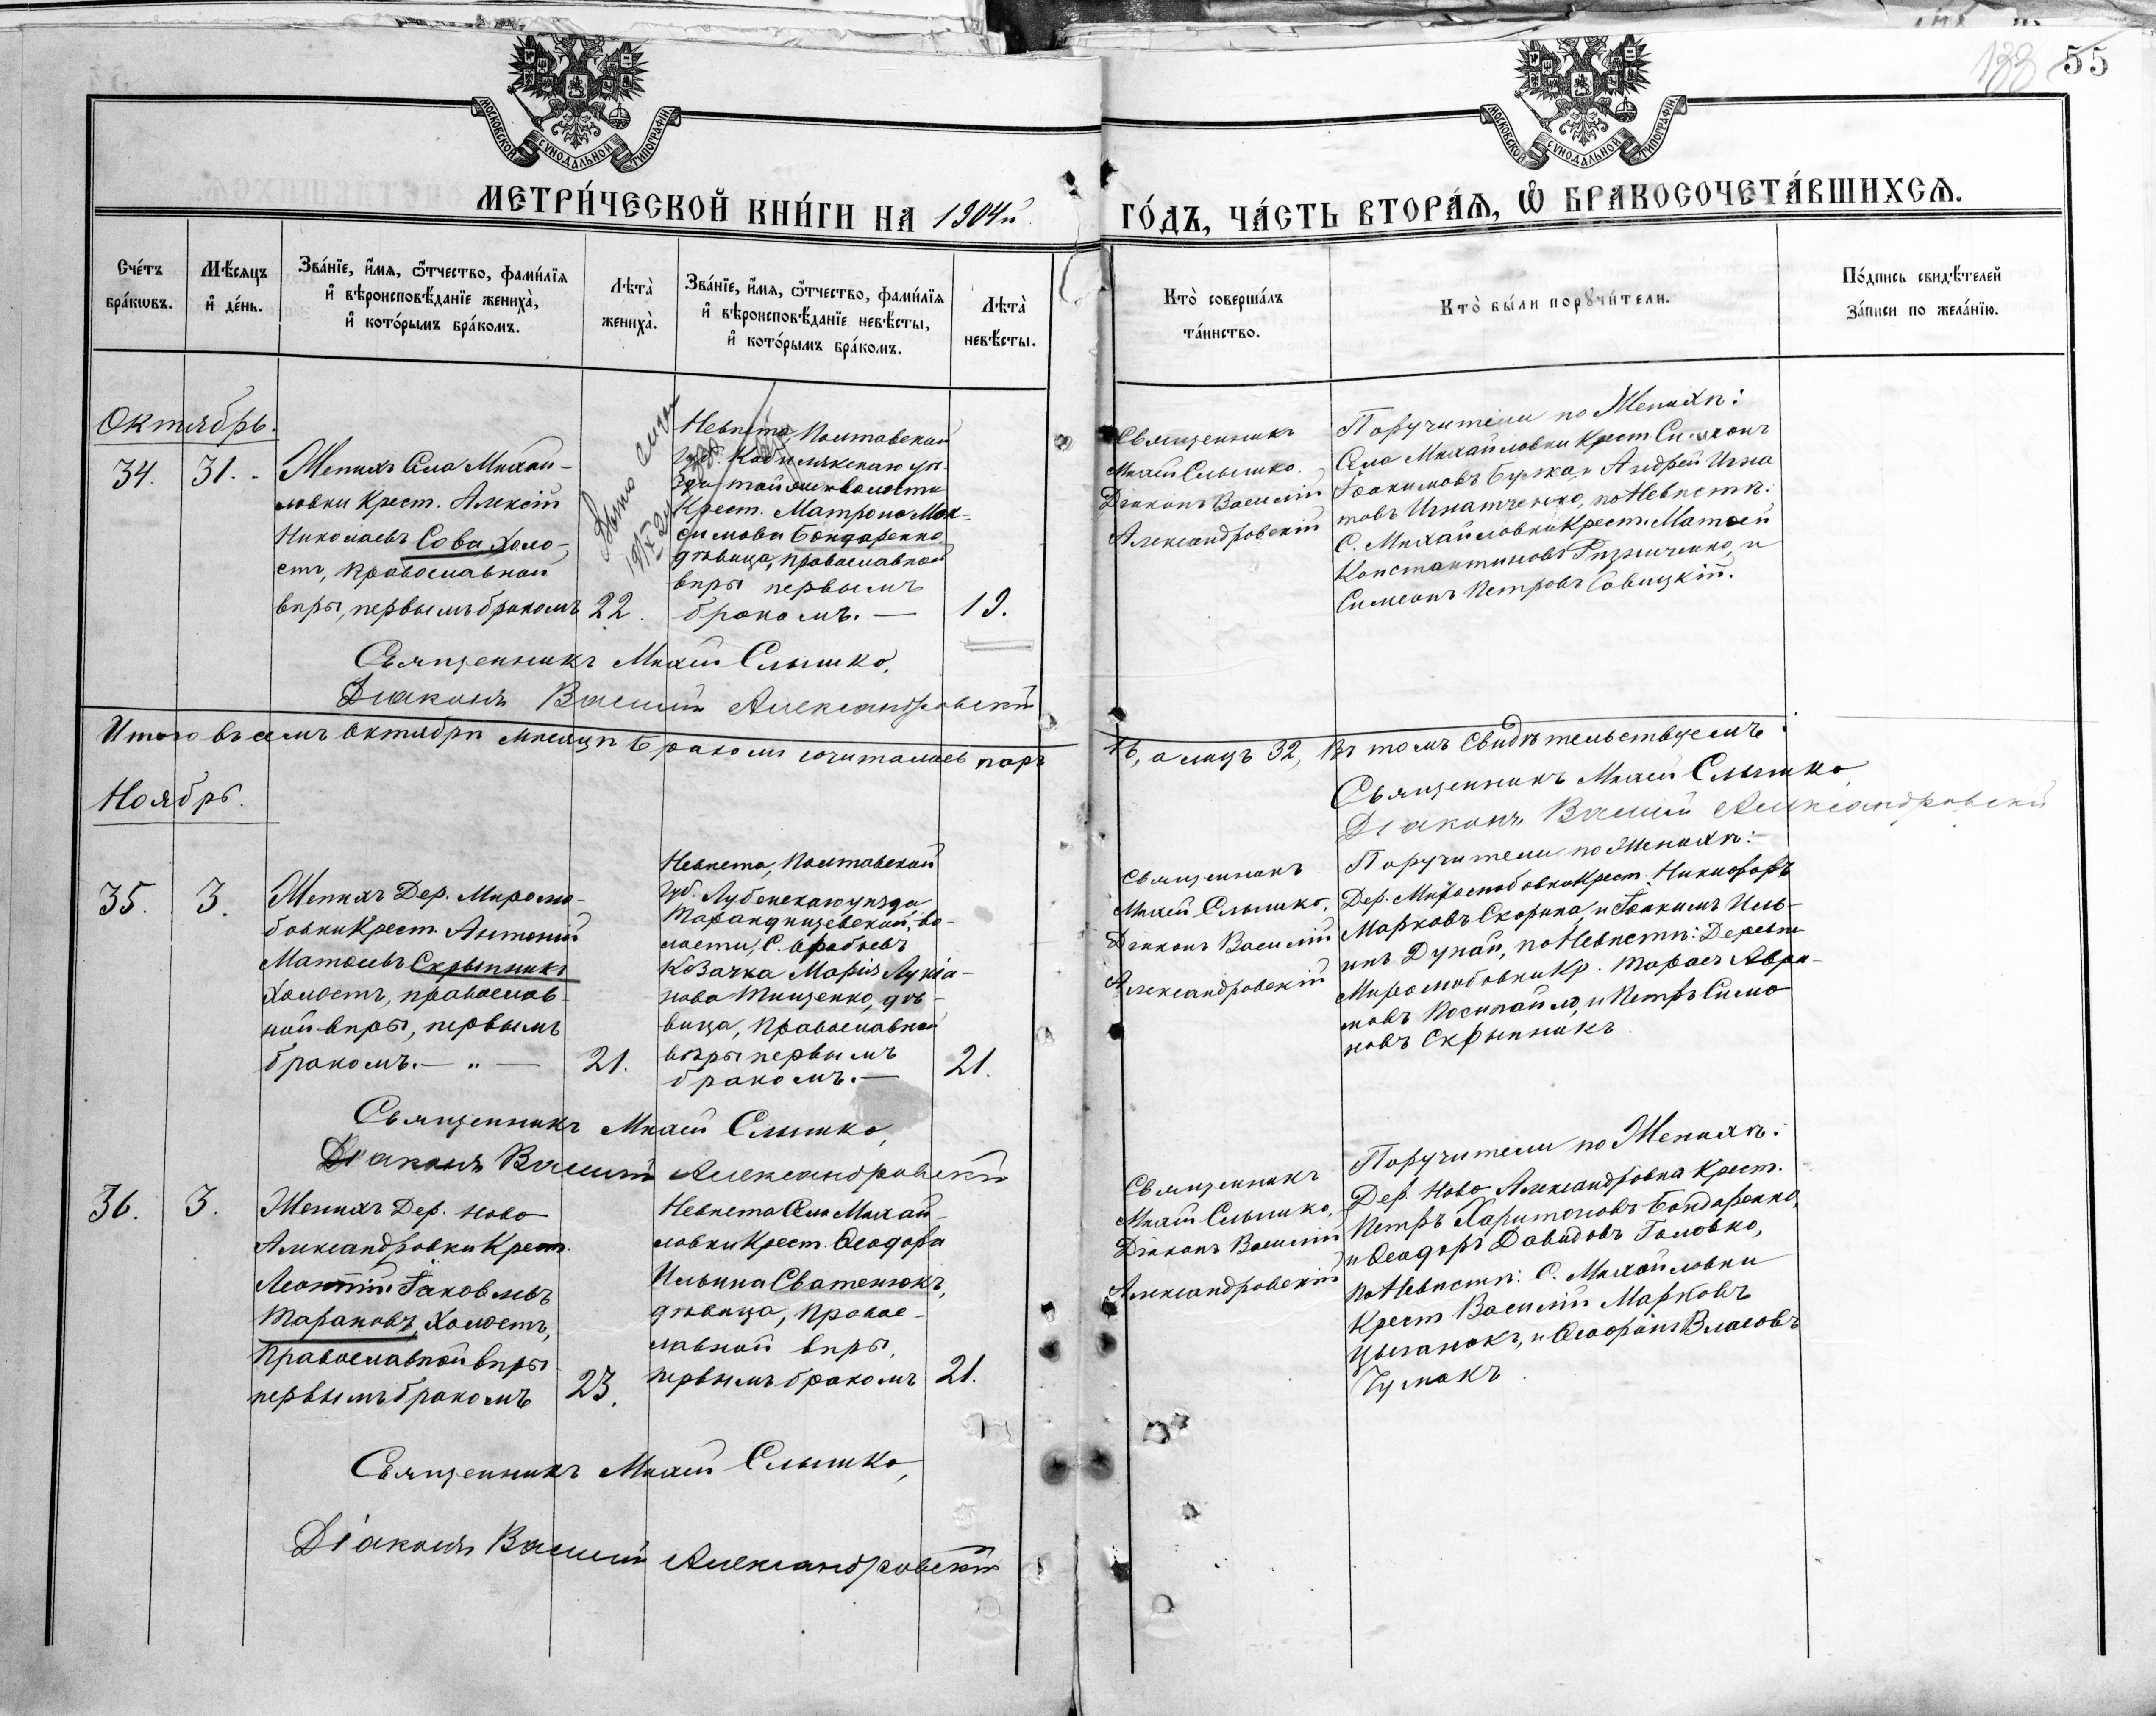 133 55
МОСКОВСКОЙ СУНОДАЛЬНОЙ ТИПОГРАФІИ.
МОСКОВСКОЙ СУНОДАЛЬНОЙ ТИПОГРАФІИ.
МЕТРИ́ЧЕСКОЙ КНИ́ГИ НА 1904й
ГО́ДЪ, ЧА́СТЬ ВТОРА́Ѧ, Ѽ БРАКОСОЧЕТА́ВШИХСѦ.
Сче́тъ
бра́кѡвъ.
Мѣ́сяцъ
и҆ де́нь.
Зва́нїе, и҆́мѧ, ѻ҆́тчество, фами́лїѧ
и҆ вѣроисповѣ́данїе жениха̀,
и҆ кото́рымъ бра́комъ.
Лѣта̀
жениха̀.
Зва́нїе, и҆́мѧ, ѻ҆́тчество, фами́лїѧ
и҆ вѣроисповѣ́данїе невѣ́сты,
и҆ кото́рымъ бра́комъ.
Лѣта̀
невѣ́сты.
Кто̀ соверша́лъ
та́инство.
Кто̀ бы́ли порꙋчи́тели.
По́дпись свидѣ́телей
за́писи по жела́нїю.
Октябрь.
34.
31.
Женихъ Села Михай-
ловки Крест. Алексій
Николаевъ Сова, холо-
стъ, православной
вѣры, первымъ бракомъ
22.
Невѣста, Полтавской
губ. Кобелякскаго уѣ-
Крест. Матрона Мак-
симова Бондаренко,
дѣвица, православной
вѣры первымъ
бракомъ. —
19.
Священникъ
Михей Слышко.
Діаконъ Василій
Александровскій
Поручители по Женихѣ:
Села Михайловки Крест. Симеонъ
Іоакимовъ Бужка, и Андрей Игна
товъ Игнатченко, по Невѣстѣ:
С. Михайловки Крест. Матѳей
Константиновъ Ризниченко, и
Симеонъ Петровъ Савицкій.
Священникъ Михей Слышко,
Діаконъ Василій Александровскій
Итого въ семъ Октябрѣ мѣсяцѣ бракомъ сочиталось паръ
16, а лицъ 32, въ томъ свидѣтельствуемъ:
Священникъ Михей Слышко
Діаконъ Василій Александровскій
Ноябрь.
35.
3.
Женихъ Дер. Миролю-
бовки Крест. Антоній
Матѳеевъ Скрыпникъ
холостъ, православ-
ной вѣры, первымъ
бракомъ. — " —
21.
Невѣста, Полтавской
губ. Лубенскаго уѣзда
Тарандинцевской, во-
лости, С.
Козачка Марія Лукіа-
нова Тищенко, дѣ-
вица, православной
вѣры первымъ
бракомъ. —
21.
Священникъ
Михей Слышко.
Діаконъ Василій
Александровскій
Поручители по Женихѣ:
Дер. Миролюбовки Крест. Никифоръ
Марковъ Скорина, и Іоакимъ Иль-
инъ Дунай, по Невѣстѣ: Деревни
Миролюбовки Кр. Тарасъ Авра-
мовъ Посипайло, и Петръ Симо
новъ Скрыпникъ.
Священникъ Михей Слышко,
Діаконъ Василій Александровскій
36.
3.
Женихъ Дер. Ново
Александровки Крест.
Леонтій Іаковлевъ
Тарановъ, холостъ,
Православной вѣры
первымъ бракомъ
23.
Невѣста Села Михай-
ловки Крест. Ѳеодора
Ильина Сватенюкъ,
дѣвица, правос-
лавной вѣры,
первымъ бракомъ
21.
Священникъ
Михей Слышко,
Діаконъ Василій
Александровскій
Поручители по Женихѣ:
Дер. Ново Александровка Крест.
Петръ Харитоновъ Бондаренко,
и Ѳеодоръ Давидовъ Головко,
по Невѣстѣ: С. Михайловки
Крест Василій Марковъ
Цыганокъ, и Ѳеофанъ Власовъ
Чумакъ.
Священникъ Михей Слышко,
Діаконъ Василій Александровскій